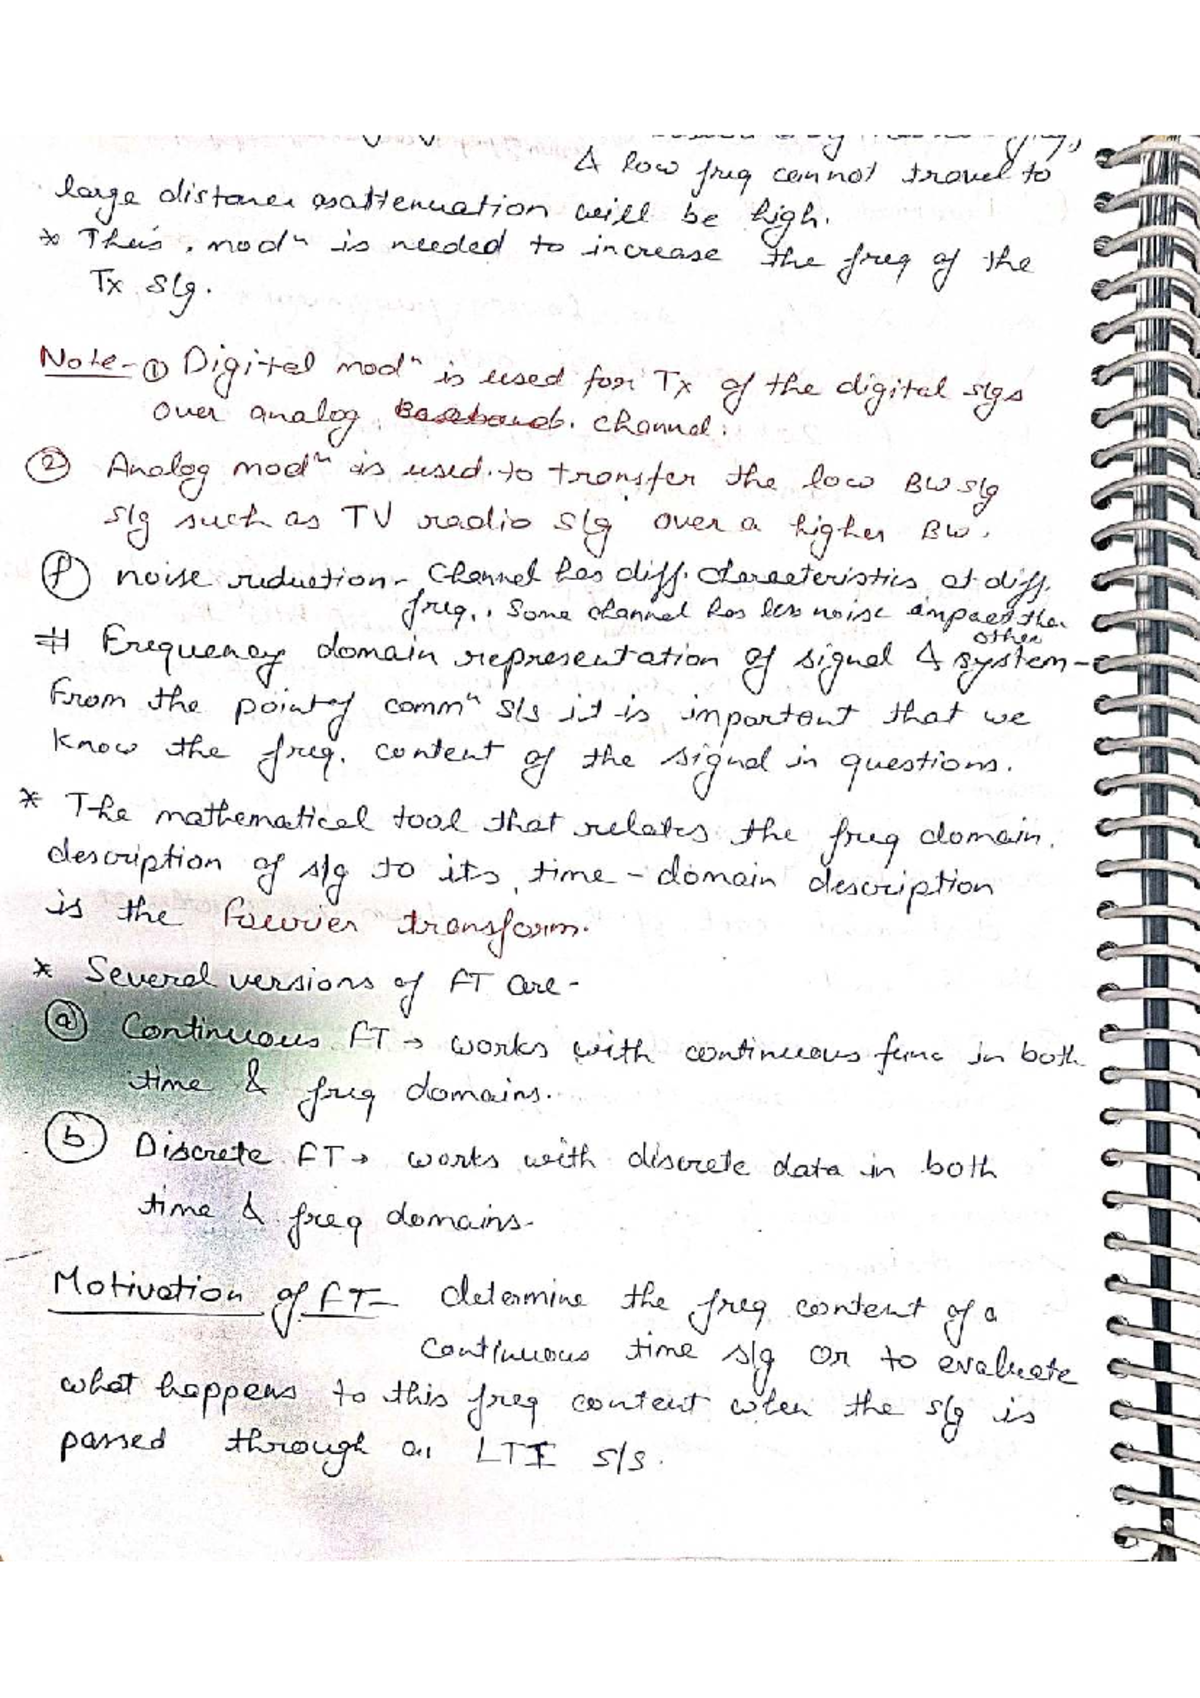 & low freq cannot travel to
large distance as attenuation will be high.
* Thus, modⁿ is needed to increase the freq of the
Tx s/g.
Note- ① Digital modⁿ is used for Tx of the digital s/gs
over analog channel.
② Analog modⁿ is used to transfer the low BW s/g
s/g such as TV radio s/g over a higher BW.
ⓕ noise reduction - Channel has diff. characteristics at diff.
freq., Some channel has less noise impact than
other
# Frequency domain representation of signal & system -
From the point of commⁿ s/s it is important that we
know the freq. content of the signal in questions.
* The mathematical tool that relates the freq domain
description of s/g to its time - domain description
is the Fourier transform.
* Several versions of FT are -
ⓐ Continuous FT → works with continuous func in both
time & freq domains.
ⓑ Discrete FT → works with discrete data in both
time & freq domains.
Motivation of FT- determine the freq content of a
continuous time s/g or to evaluate
what happens to this freq content when the s/g is
passed through an LTI s/s.